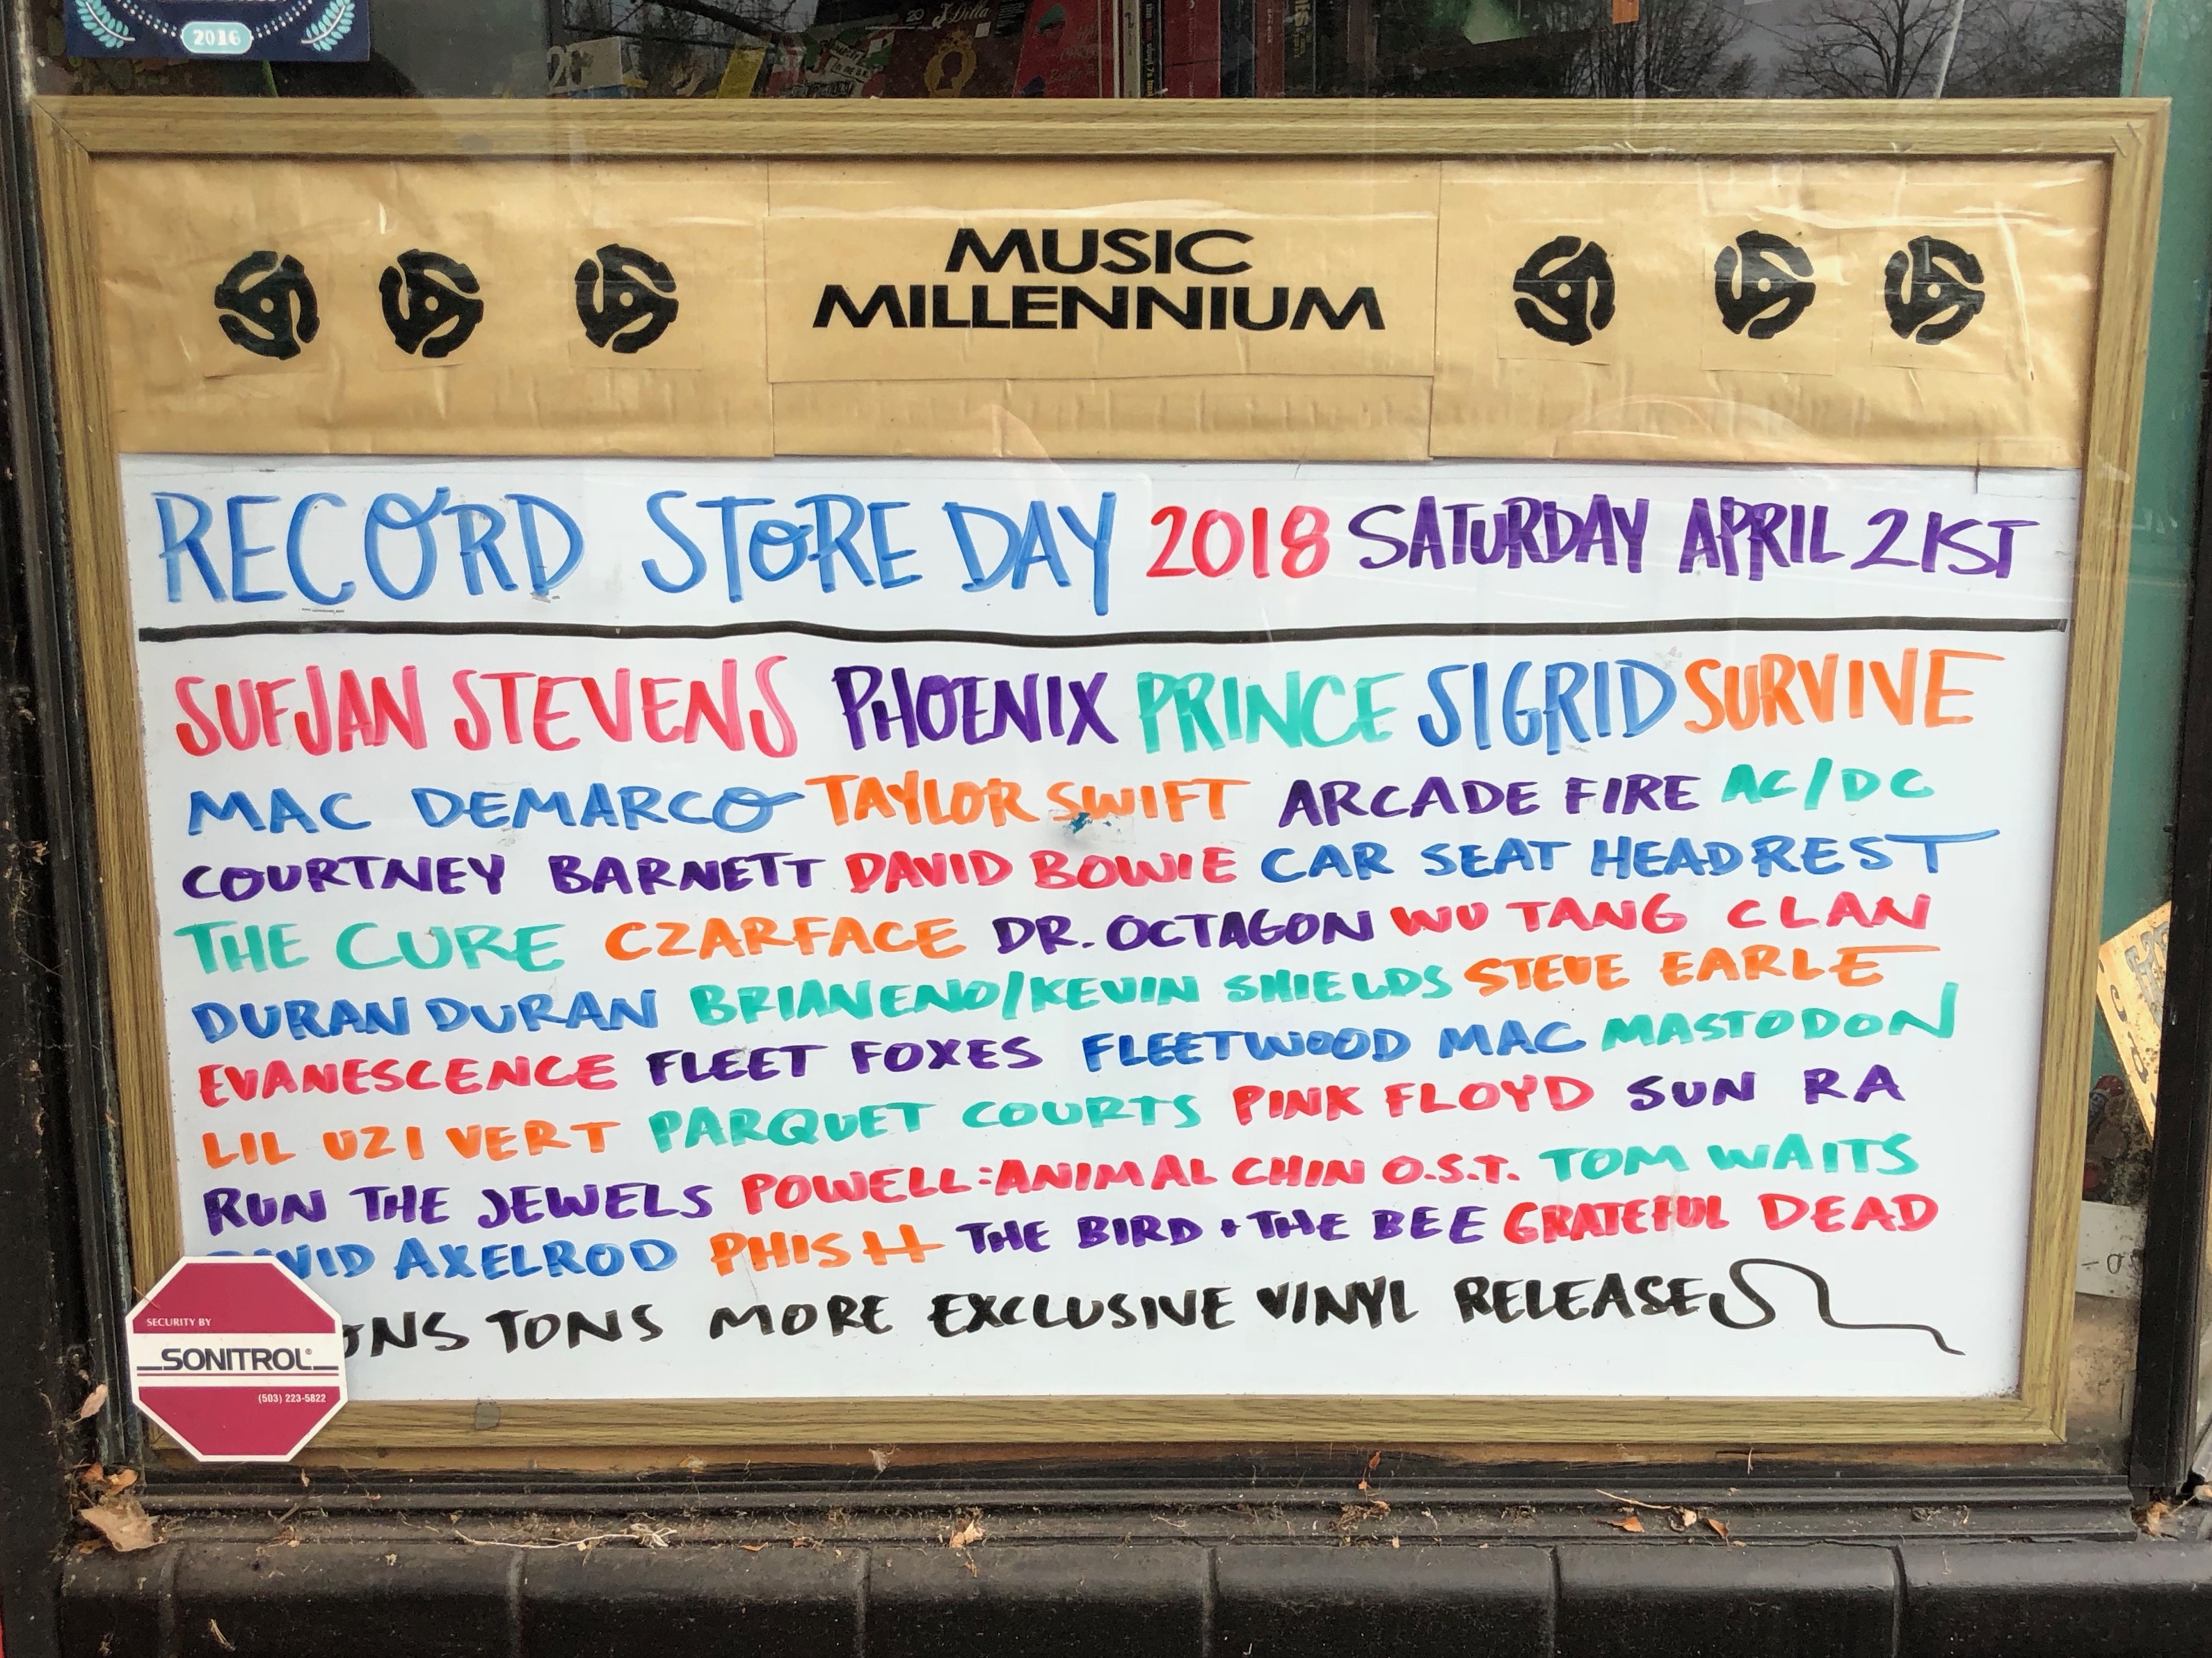 2016
20 J Dilla
MUSIC
MILLENNIUM
RECORD STORE DAY 2018 SATURDAY APRIL 21ST
SUFJAN STEVENS PHOENIX PRINCE SIGRID SURVIVE
MAC DEMARCO TAYLOR SWIFT ARCADE FIRE AC/DC
COURTNEY BARNETT DAVID BOWIE CAR SEAT HEADREST
THE CURE CZARFACE DR. OCTAGON WU TANG CLAN
DURAN DURAN BRIAN ENO/KEVIN SHIELDS STEVE EARLE
EVANESCENCE FLEET FOXES FLEETWOOD MAC MASTODON
LIL UZI VERT PARQUET COURTS PINK FLOYD SUN RA
RUN THE JEWELS POWELL:ANIMAL CHIN O.S.T. TOM WAITS
AXELROD PHISH THE BIRD + THE BEE GRATEFUL DEAD
TONS MORE EXCLUSIVE VINYL RELEASES
SECURITY BY
SONITROL®
(503) 223-5822